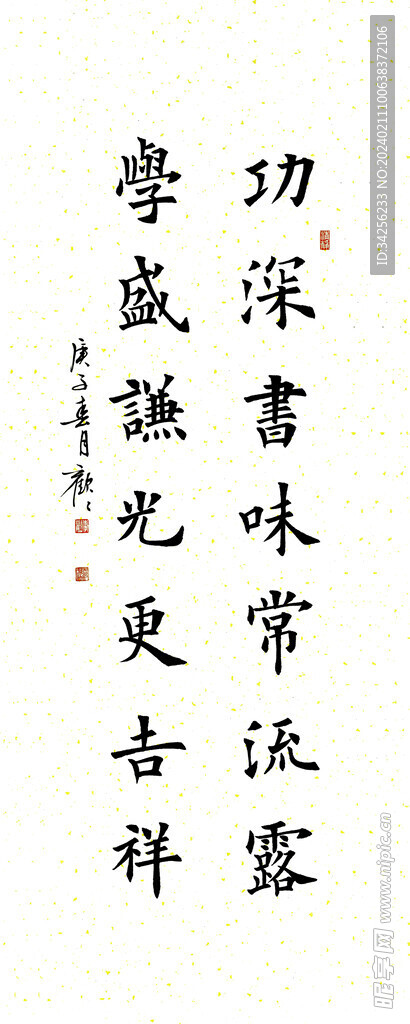 功深書味常流露
學盛謙光更吉祥
庚子春月歡〻
ID:34256233 NO:20240211100638372106
昵享网 www.nipic.cn